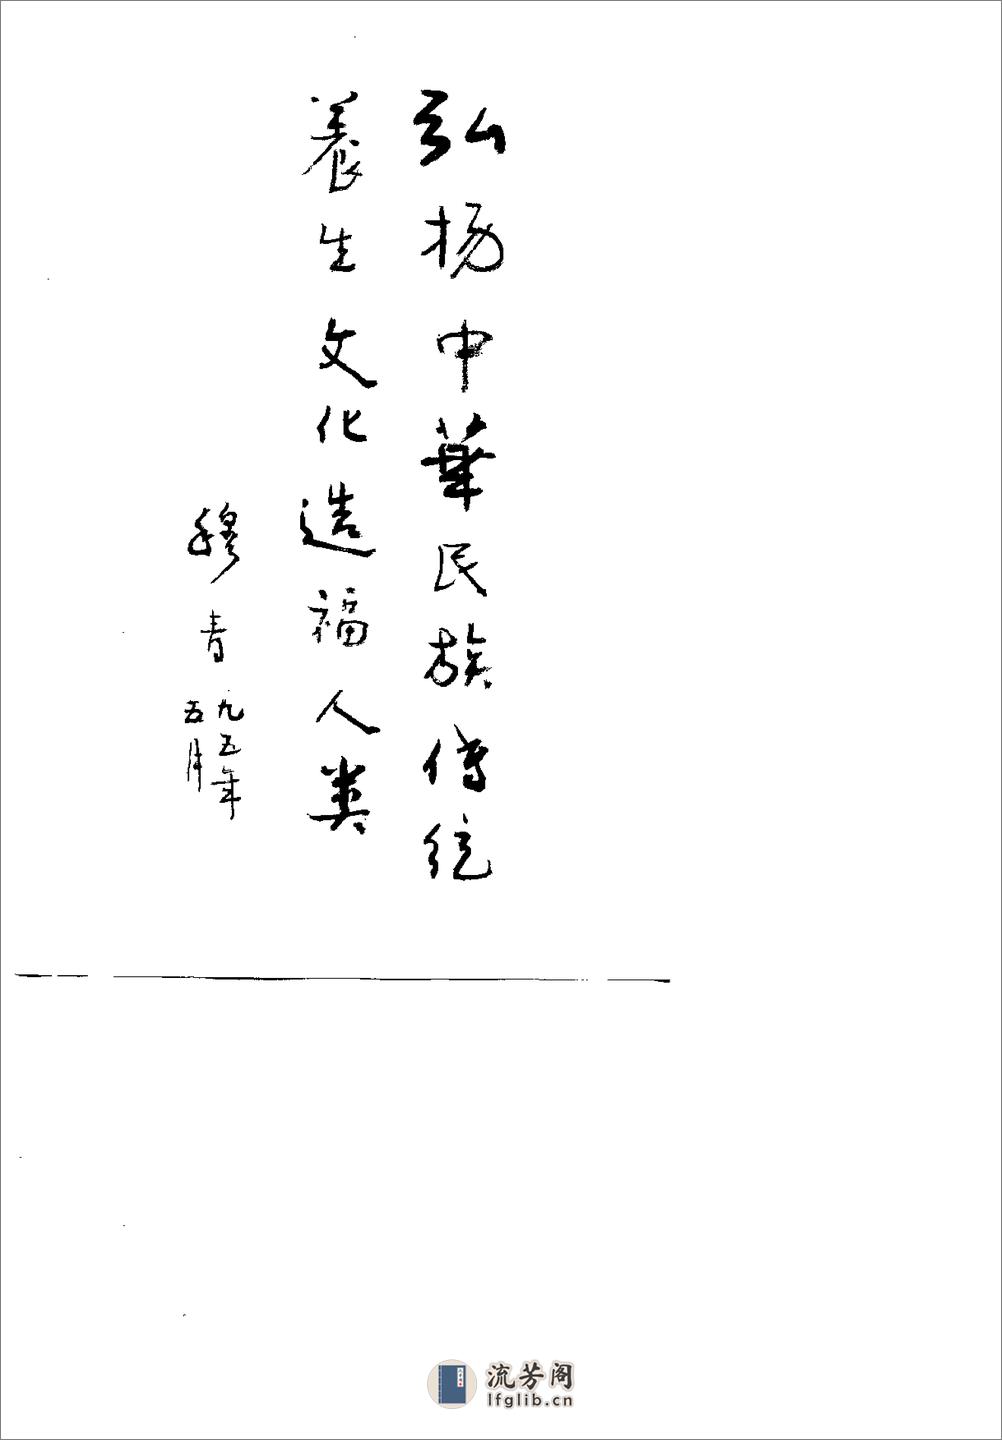 弘揚中華民族傳統
養生文化造福人类
穆青
九五年
五月
流芳阁
lfglib.cn